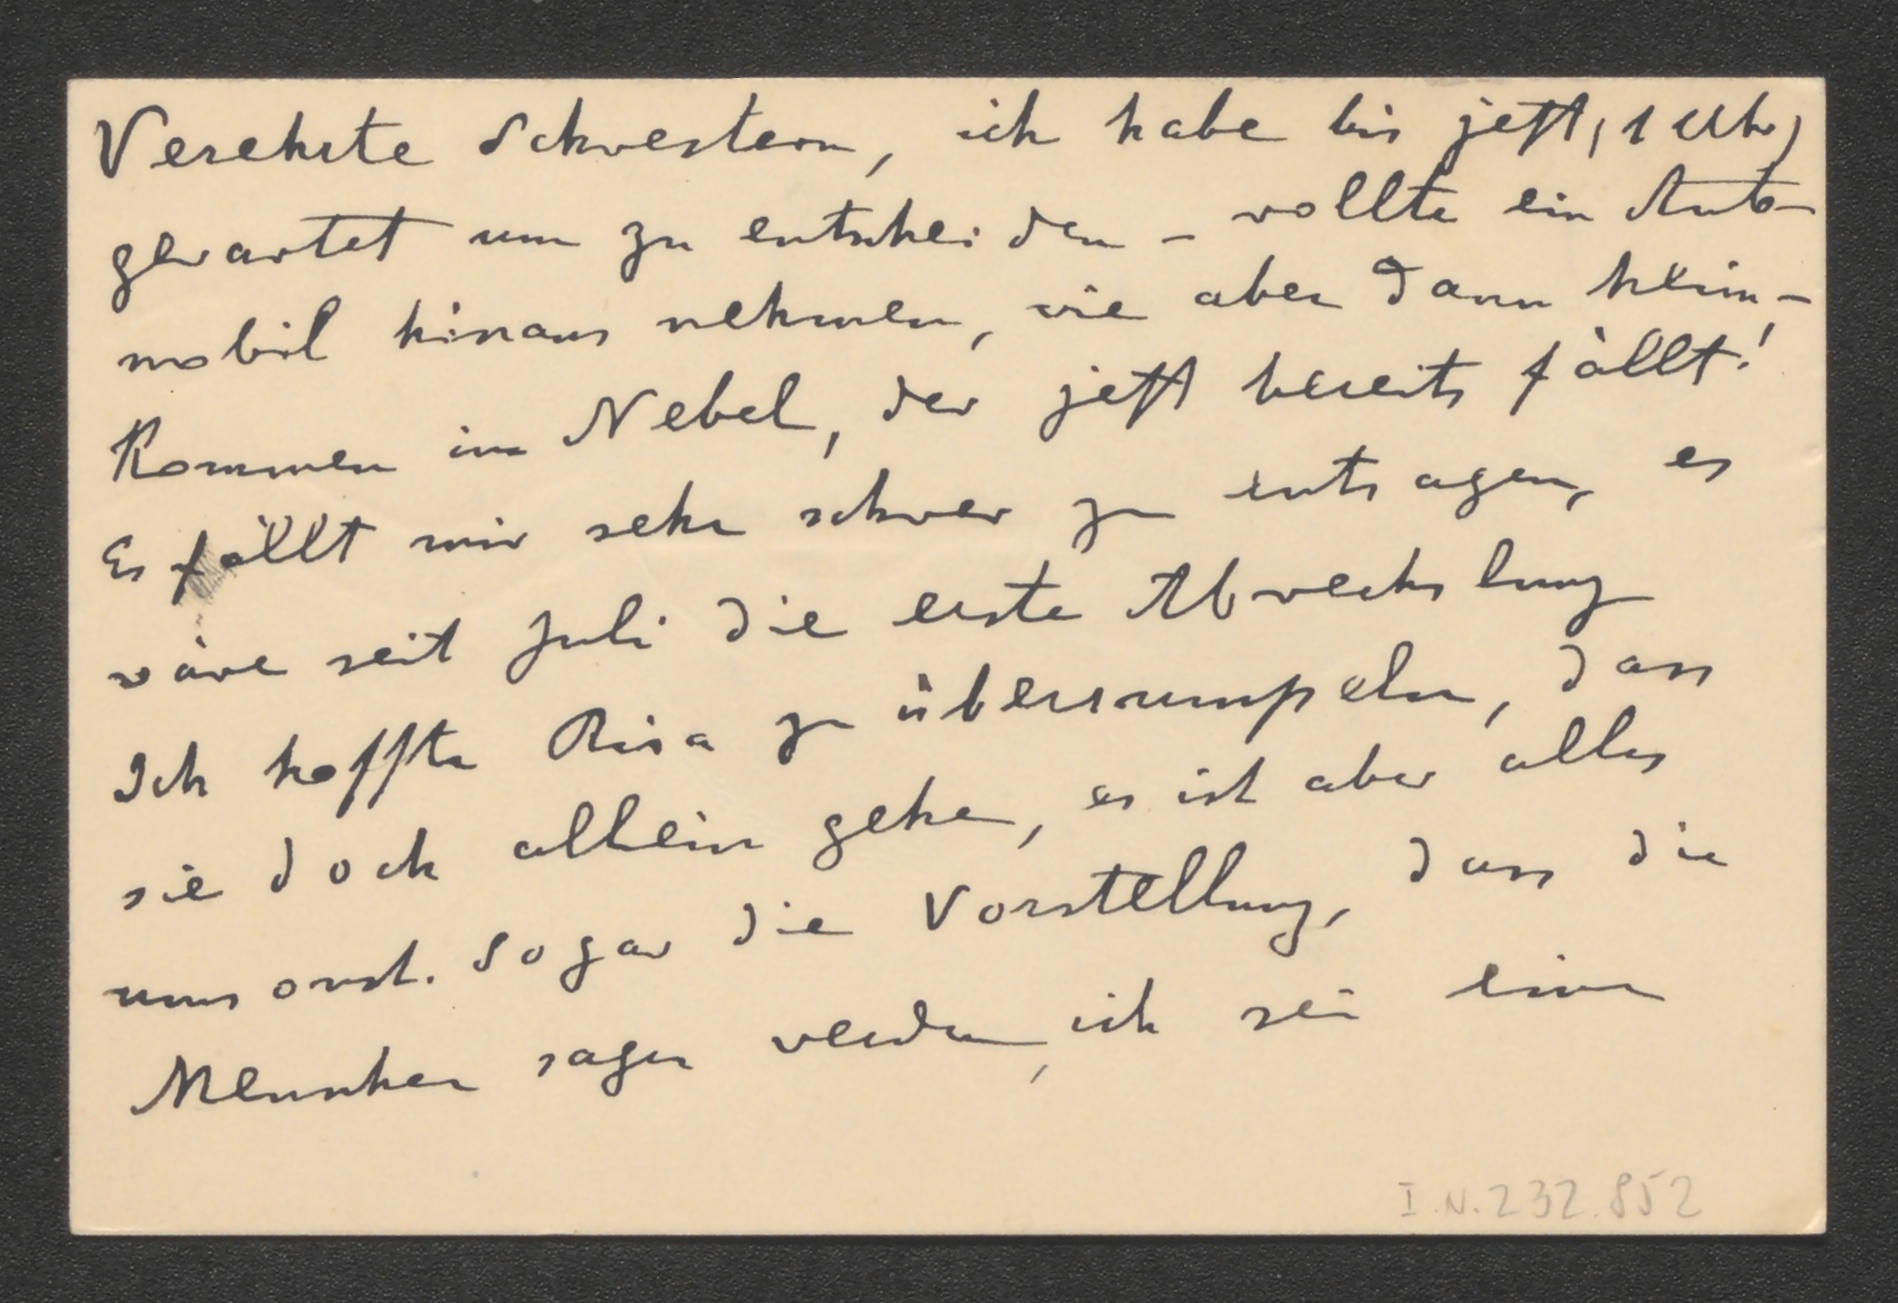 Verehrte Schwestern, ich habe bis jetzt (1 Uhr)
gewartet um zu entscheiden – wollte ein Auto-
mobil hinaus nehmen, wie aber dann heim-
kommen im Nebel, der jetzt bereits fällt!
Es fällt mir sehr schwer zu entsagen, es
wäre seit Juli die erste Abwechslung
Ich hoffte Risa zu überrumpeln, dass
sie doch allein gehe, es ist aber alles
umsonst. Sogar die Vorstellung, dass die
Menschen sagen werden, ich sei eine
I.N.232.852